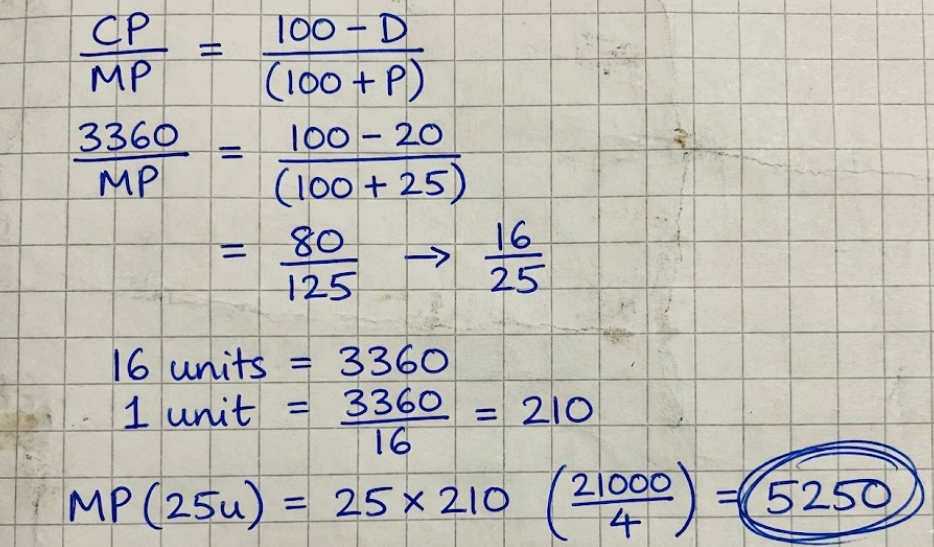 CP/MP = 100 - D/(100 + P)
3360/MP = 100 - 20/(100 + 25)
= 80/125 → 16/25
16 units = 3360
1 unit = 3360/16 = 210
MP (25u) = 25 × 210 (21000/4) = 5250